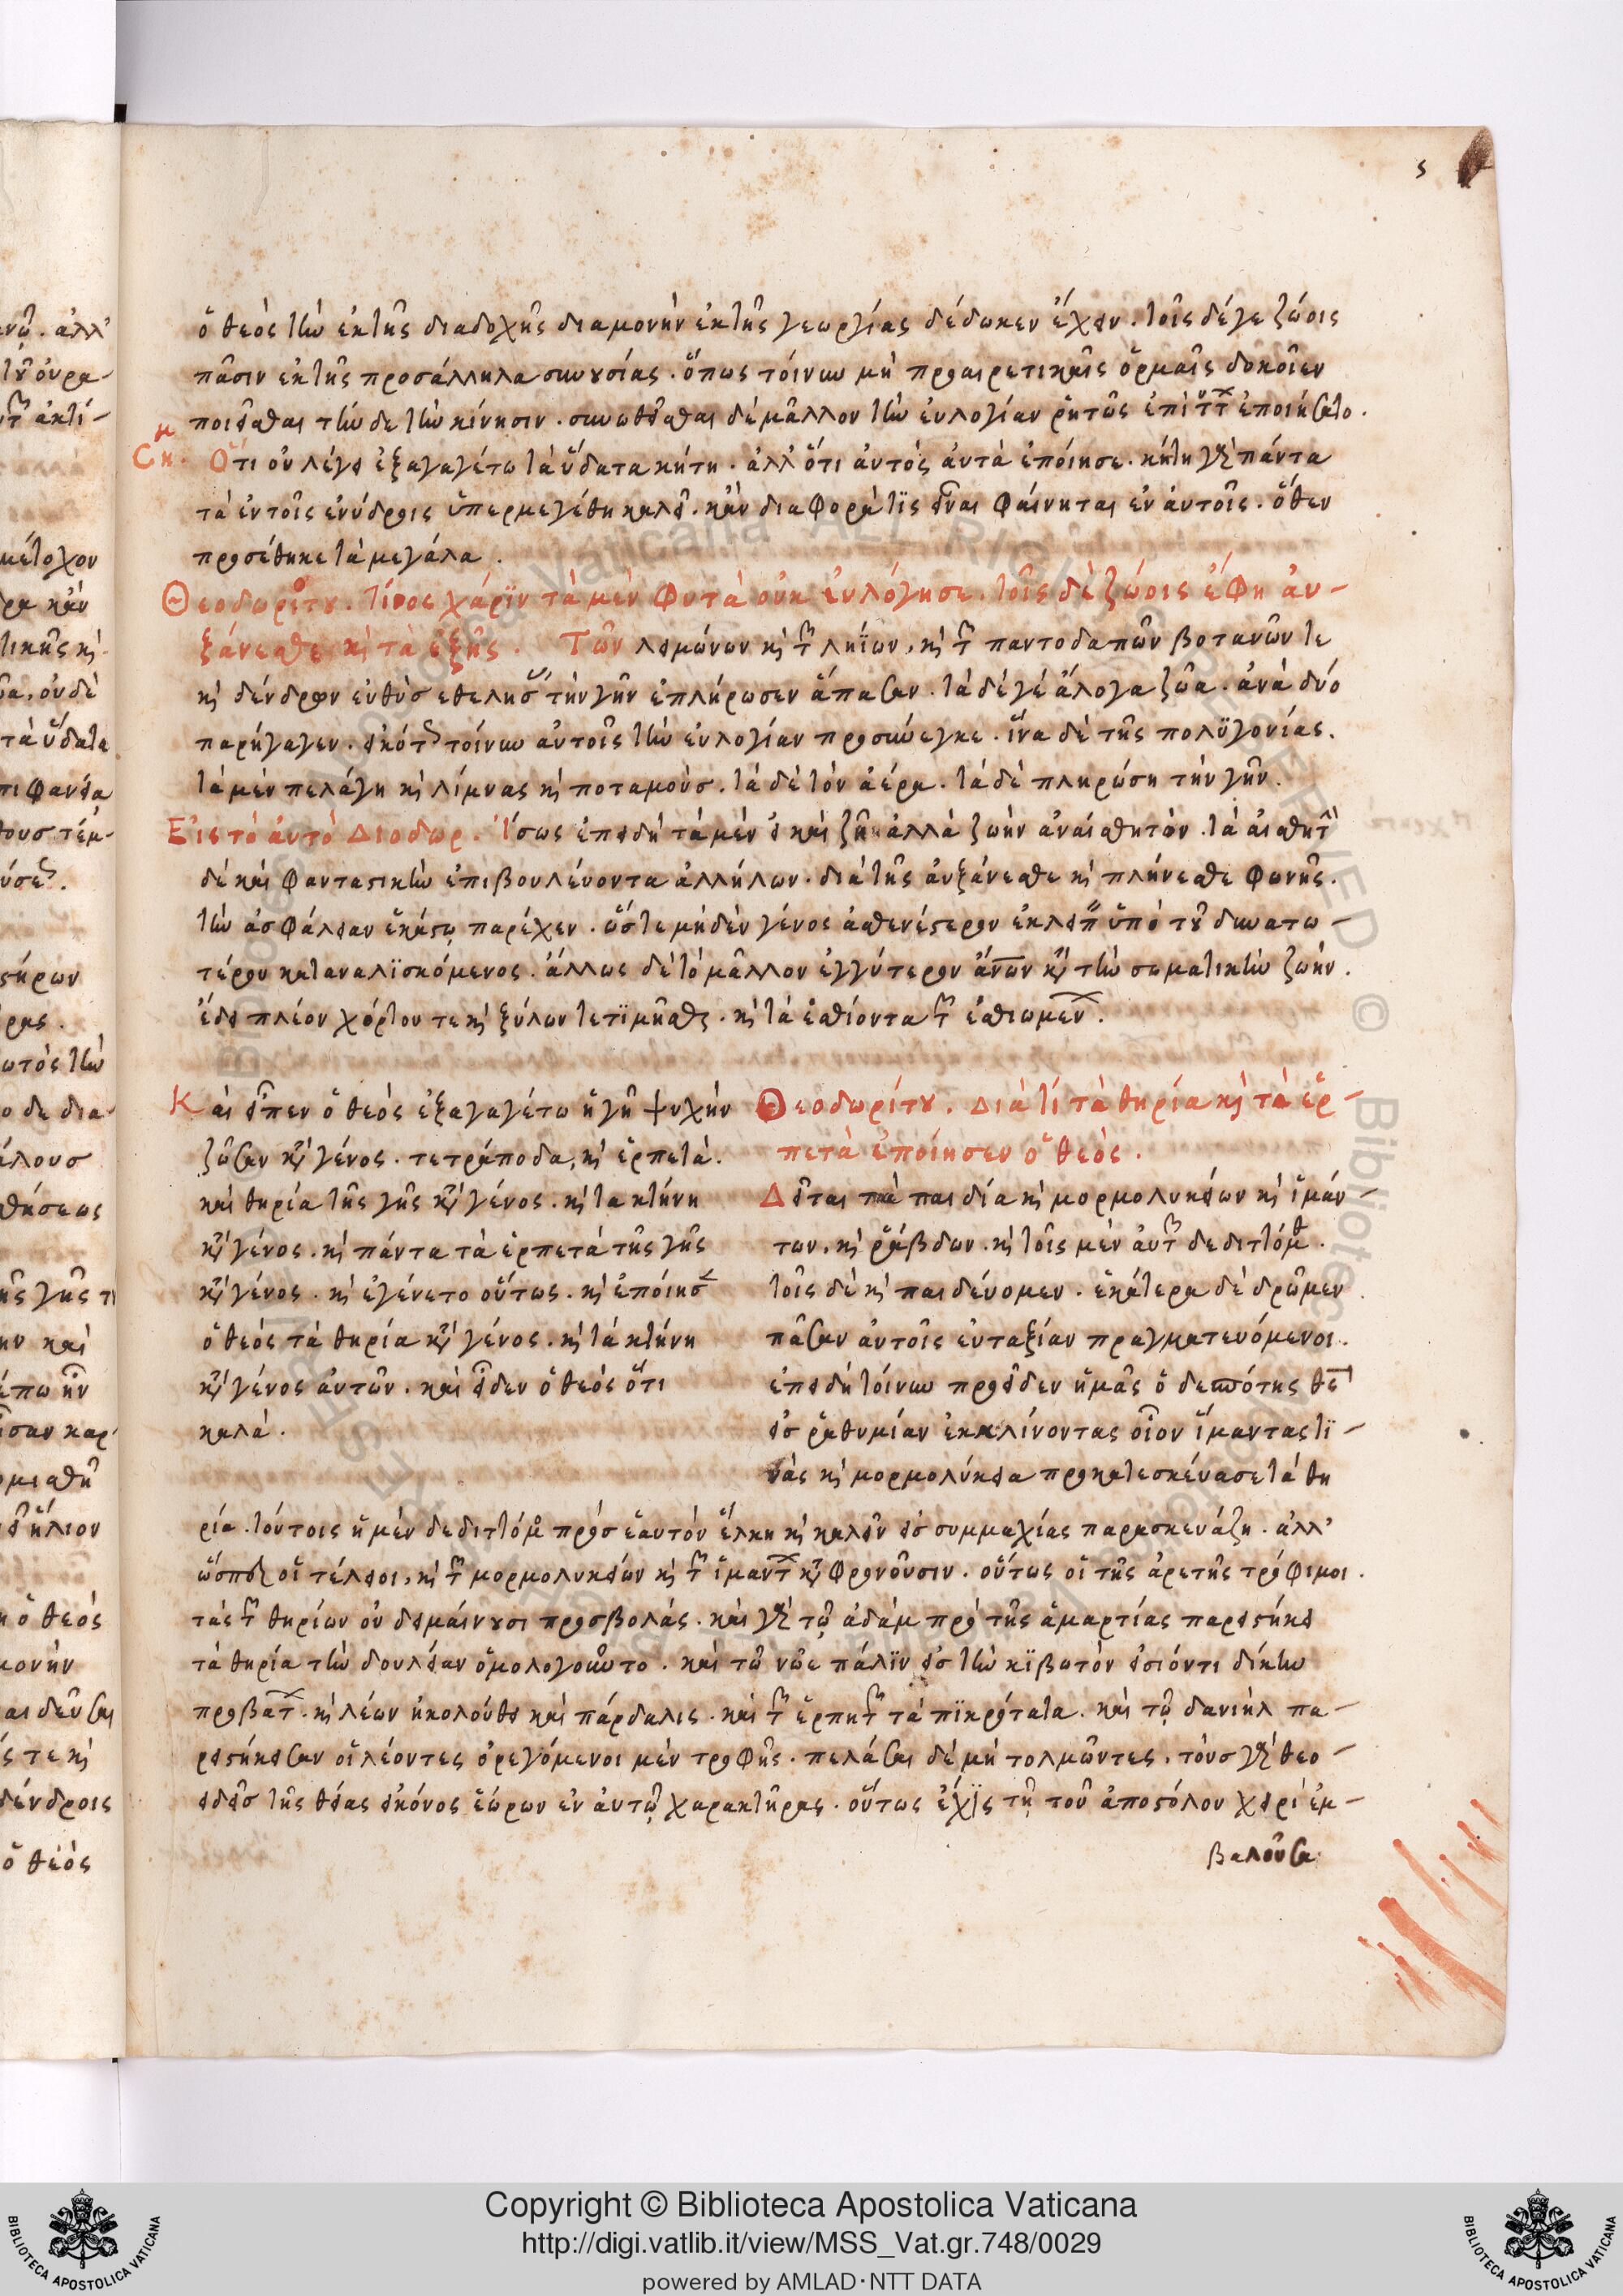 ς
ὁ θεὸς τὴν ἐκ τῆς διαδοχῆς διαμονὴν ἐκ τῆς γεωργίας δέδωκεν ἔχειν. τοῖς δέ γε ζώοις
πᾶσιν ἐκ τῆς προσάλληλα συνουσίας. ὅπως τοίνυν μὴ προαιρετικαῖς ὁρμαῖς δοκοῖεν
ποιεῖσθαι τήνδε τὴν κίνησιν. συνωθεῖσθαι δὲ μᾶλλον τὴν εὐλογίαν ῥητῶς ἐπὶ τούτων ἐποιήσατο.
Ση. Ὅτι οὐ λέγει ἐξαγαγέτω τὰ ὕδατα κήτη. ἀλλ' ὅτι αὐτὸς αὐτὰ ἐποίησε. κήτη γὰρ πάντα
τὰ ἐν τοῖς ἐνύδροις ὑπερμεγέθη καλεῖ. κἂν διαφορά τις εἶναι φαίνηται ἐν αὐτοῖς. ὅθεν
προσέθηκε τὰ μεγάλα.
Θεοδωρίτου. Τίνος χάρϊν τὰ μὲν φυτὰ οὐκ εὐλόγησε. τοῖς δὲ ζώοις ἔφη αὐ-
ξάνεσθε κὶ τὰ ἑξῆς. Τῶν λειμώνων κὶ τῶν ληΐων, κὶ τῶν παντοδαπῶν βοτανῶν τε
κὶ δένδρων εὐθὺσ ἐθελήσας τὴν γῆν ἐπλήρωσεν ἅπασαν. τὰ δέ γέ ἄλογα ζῶα. ἀνὰ δύο
παρήγαγεν. εἰκότως τοίνυν αὐτοῖς τὴν εὐλογίαν προσήνεγκε. ἵνα δὲ τῆς πολϋγονίας.
τὰ μὲν πελάγη κὶ λίμνας κὶ ποταμοὺσ. τὰ δὲ τὸν ἀέρα. τὰ δὲ πληρώση τὴν γῆν.
Εἰς τὸ αὐτὸ Διοδωρ. Ἴσως ἐπειδὴ τὰ μὲν εἰ καὶ ζῆ ἀλλὰ ζωὴν ἀναίσθητον. τὰ αἰσθητὰ
δὲ καὶ φανταστικὴν ἐπιβουλεύοντα ἀλλήλων. διὰ τῆς αὐξάνεσθε κὶ πλήνεσθε φωνῆς.
τὴν ἀσφάλειαν ἑκάστω παρέχεν. ὥστε μηδὲν γένος ἀσθενέστερον ἐκλείπειν ὑπὸ τοῦ δυνατω-
τέρου καταναλϊσκόμενος. ἄλλως δὲ τὸ μᾶλλον ἐγγύτερον ἀνων κατὰ τὴν σωματικὴν ζωὴν.
ἔδει πλέον χόρτου τε κὶ ξύλων τετϊμῆσθαι. κὶ τὰ ἐσθίοντα τῶν ἐσθιωμένων.
Καὶ εἶπεν ὁ θεὸς ἐξαγαγέτω ἡ γῆ ψυχὴν
ζῶσαν κατὰ γένος. τετράποδα, κὶ ἑρπετὰ.
καὶ θηρία τῆς γῆς κατὰ γένος. κὶ τα κτήνη
κατὰ γένος. κὶ πάντα τὰ ἑρπετὰ τῆς γῆς
κατὰ γένος. κὶ ἐγένετο οὕτως. κὶ ἐποίησεν
ὁ θεὸς τὰ θηρία κατὰ γένος. κὶ τὰ κτήνη
κατὰ γένος αὐτῶν. καὶ εἶδεν ὁ θεὸς ὅτι
καλά.
Θεοδωρίτου. Διὰ τί τὰ θηρία κὶ τὰ ἑρ-
πετὰ ἐποίησεν ὁ θεὸς.
Δεῖται τὰ παιδία κὶ μορμολυκείων κὶ ἱμάν-
των. κὶ ῥάβδων. κὶ τοῖς μὲν αὐτῶν δεδιττόμεθα.
τοῖς δὲ κὶ παιδεύομεν. ἑκάτερα δὲ δρῶμεν
πᾶσαν αὐτοῖς εὐταξίαν πραγματευόμενοι.
ἐπειδὴ τοίνυν προεῖδεν ἡμᾶς ὁ δεσπότης θεὸς
εἰς ῥαθυμίαν ἐκκλίνοντας οἷον ἱμάντας τϊ-
νὰς κὶ μορμολύκεια προκατεσκέυασε τὰ θη
ρία. τούτοις ἡμὲν δεδιττόμενος πρὸσ ἑαυτὸν ἕλκη κὶ καλεῖν εἰς συμμαχίας παρασκευάζη. ἀλλ'
ὥσπερ οἱ τέλειοι, κὶ τῶν μορμολυκείων κὶ τῶν ἱμάντων καταφρονοῦσιν. οὕτως οἱ τῆς ἀρετῆς τρόφιμοι.
τὰς τῶν θηρίων οὐ δειμαίνουσι προσβολάς. καὶ γὰρ τῶ ἀδάμ πρὸ τῆς ἁμαρτίας παρειστήκει
τὰ θηρία τὴν δουλείαν ὁμολογοῦντο. καὶ τῶ νῶε πάλϊν εἰς τὴν κϊβωτὸν εἰσιόντι δίκην
προβάτων. κὶ λέων ἠκολούθει καὶ πάρδαλις. καὶ τῶν ἑρπητῶν τὰ πϊκρότατα. καὶ τῶ δανιὴλ πα-
ρειστήκεισαν οἱ λέοντες ὀρεγόμενοι μὲν τροφῆς. πελάσαι δὲ μὴ τολμῶντες. τοὺσ γὰρ θεο-
ειδεῖσ τῆς θείας εἰκόνος ἑώρων ἐν αὐτῶ χαρακτῆρας. οὕτως ἔχϊς τῆ τοῦ ἀποστόλου χειρὶ ἐμ-
βαλοῦσα
Copyright © Biblioteca Apostolica Vaticana
http://digi.vatlib.it/view/MSS_Vat.gr.748/0029
powered by AMLAD·NTT DATA
BIBLIOTECA APOSTOLICA VATICANA
BIBLIOTECA APOSTOLICA VATICANA